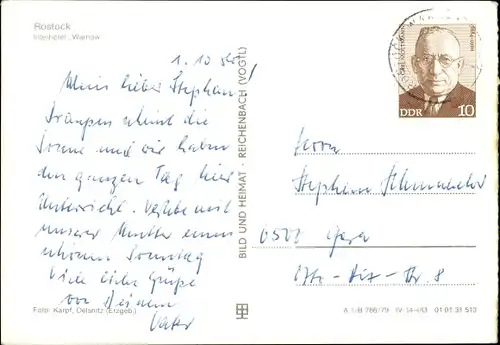 Rostock
Interhotel „Warnow“
1. 10
Mein lieber Stephan!
Draußen scheint die
Sonne und wir haben
den ganzen Tag hier
Unterricht. Verlebe mit
unserer Mutter einen
schönen Sonntag
Viele liebe Grüße
von Deinem
Vater
Foto: Karpf, Oelsnitz (Erzgeb.)
BILD UND HEIMAT · REICHENBACH (VOGTL)
DDR 10
Herrn
Stephan
6500 Gera
Otto-Dix-Str. 8
A 1/B 786/79 IV-14-483 01 01 31 513